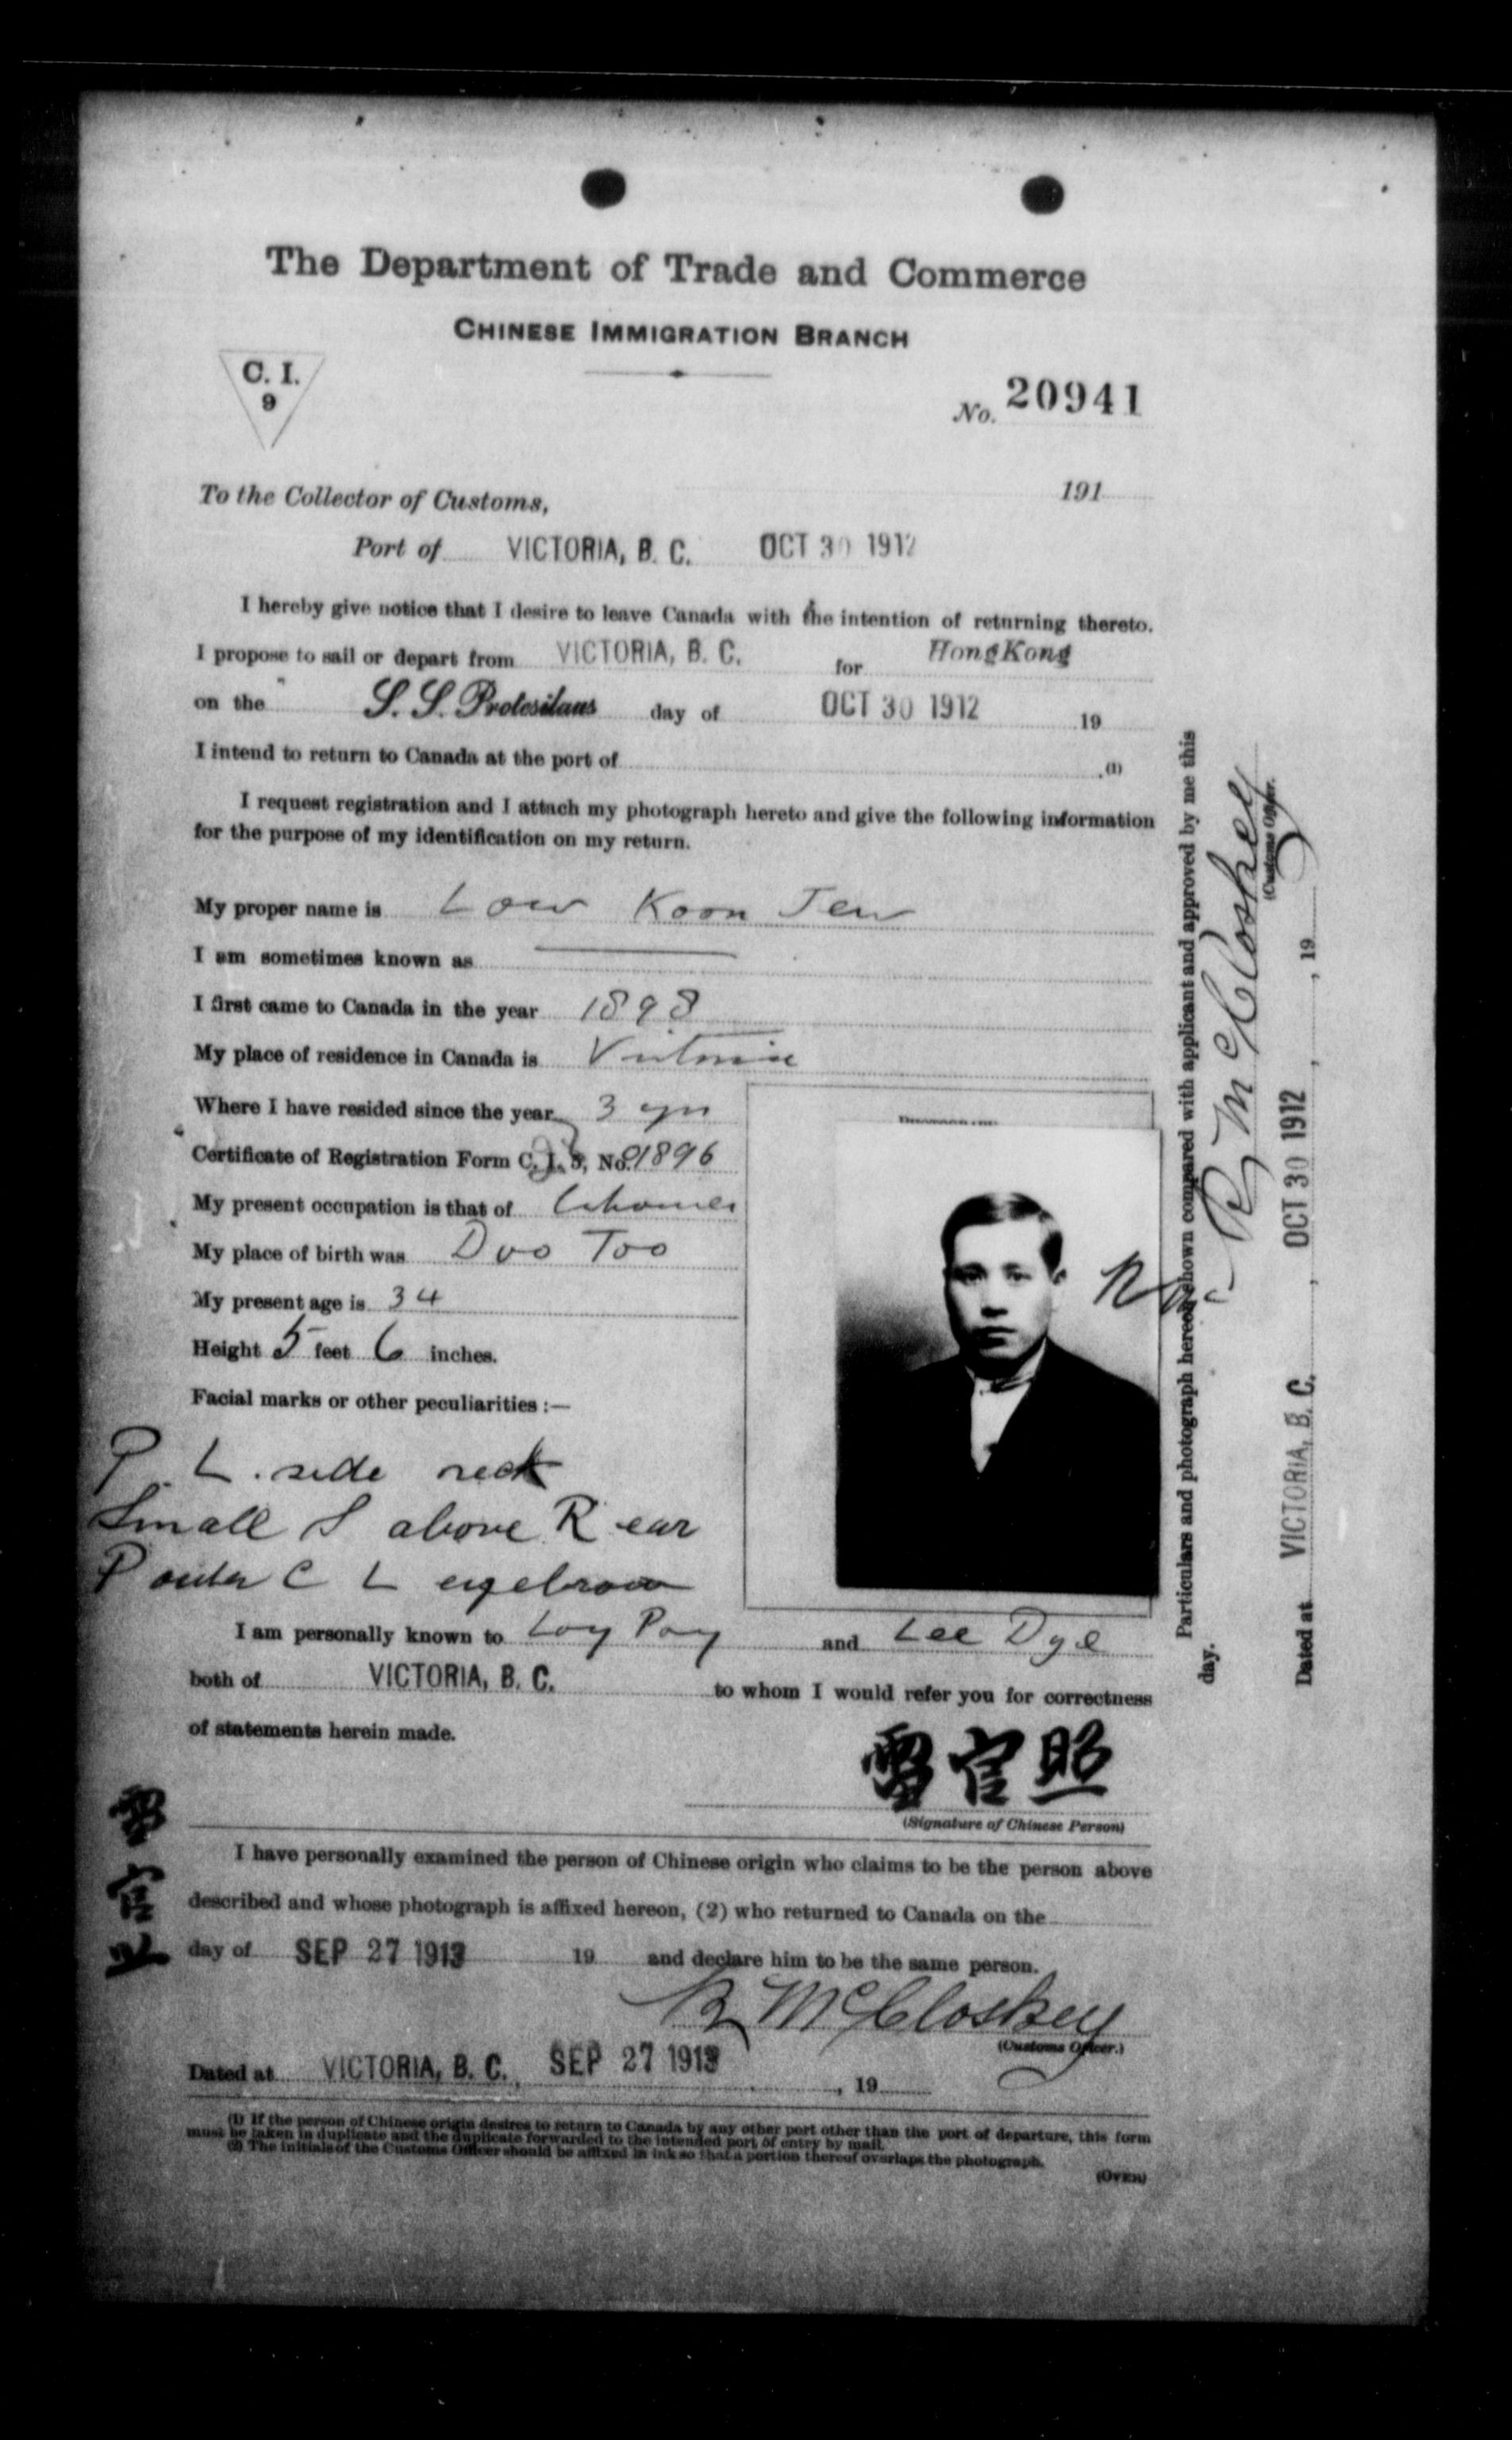 The Department of Trade and Commerce
CHINESE IMMIGRATION BRANCH
C. I.
9
No. 20941
To the Collector of Customs,
191
Port of VICTORIA, B. C. OCT 30 1912
I hereby give notice that I desire to leave Canada with the intention of returning thereto.
I propose to sail or depart from VICTORIA, B. C. for HongKong
on the S. S. Protesilaus day of OCT 30 1912 19
I intend to return to Canada at the port of .(1)
I request registration and I attach my photograph hereto and give the following information
for the purpose of my identification on my return.
My proper name is Low Koon Jew
I am sometimes known as
I first came to Canada in the year 1898
My place of residence in Canada is Victoria
Where I have resided since the year 3 yrs
Certificate of Registration Form C. I. 5, No. 1896
My present occupation is that of
My place of birth was Doo Too
My present age is 34
Height 5 feet 6 inches.
Facial marks or other peculiarities :—
P. L. side neck
Small S above R ear
P outer C L eyebrow
I am personally known to Loy Poy and Lee Dye
both of VICTORIA, B. C. to whom I would refer you for correctness
of statements herein made.
雷官照
(Signature of Chinese Person)
雷官
I have personally examined the person of Chinese origin who claims to be the person above
described and whose photograph is affixed hereon, (2) who returned to Canada on the
day of SEP 27 1913 19 and declare him to be the same person.
R McCloskey
(Customs Officer.)
Dated at VICTORIA, B. C. SEP 27 1913 , 19
(1) If the person of Chinese origin desires to return to Canada by any other port other than the port of departure, this form
must be taken in duplicate and the duplicate forwarded to the intended port of entry by mail.
(2) The initials of the Customs Officer should be affixed in ink so that a portion thereof overlaps the photograph.
(OVER)
Particulars and photograph hereon shown compared with applicant and approved by me this
day.
R McCloskey
(Customs Officer.)
Dated at VICTORIA, B. C. , OCT 30 1912 , , 19